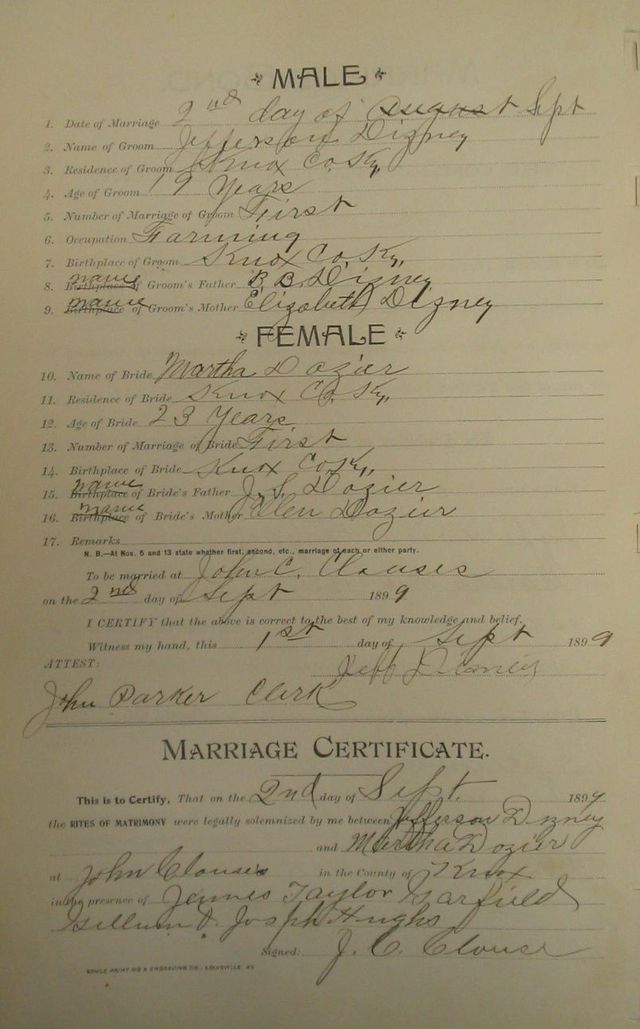 MALE
1. Date of Marriage 2nd day of August Sept
2. Name of Groom Jefferson Dizney
3. Residence of Groom Knox Co. Ky,
4. Age of Groom 19 Years
5. Number of Marriage of Groom First
6. Occupation Farming
7. Birthplace of Groom Knox Co. Ky,
8. Birthplace name of Groom's Father B. B. Dizney
9. Birthplace name of Groom's Mother Elizabeth Dizney
FEMALE
10. Name of Bride Martha Dozier
11. Residence of Bride Knox Co. Ky,
12. Age of Bride 23 Years
13. Number of Marriage of Bride First
14. Birthplace of Bride Knox Co. Ky,
15. Birthplace name of Bride's Father J. S. Dozier
16. Birthplace name of Bride's Mother Ellen Dozier
17. Remarks
N. B.—At Nos. 5 and 13 state whether first, second, etc., marriage of each or either party.
To be married at John C. Clouses
on the 2nd day of Sept 1899
I CERTIFY that the above is correct to the best of my knowledge and belief.
Witness my hand, this 1st day of Sept 1899
ATTEST: Jeff Dizney
John Parker Clerk
MARRIAGE CERTIFICATE.
This is to Certify, That on the 2nd day of Sept. 1899
the RITES OF MATRIMONY were legally solemnized by me between Jefferson Dizney
and Martha Dozier
at John Clouses in the County of Knox
in the presence of James Taylor Garfield
Gillum & Joseph Hughs
Signed: J. C. Clouse